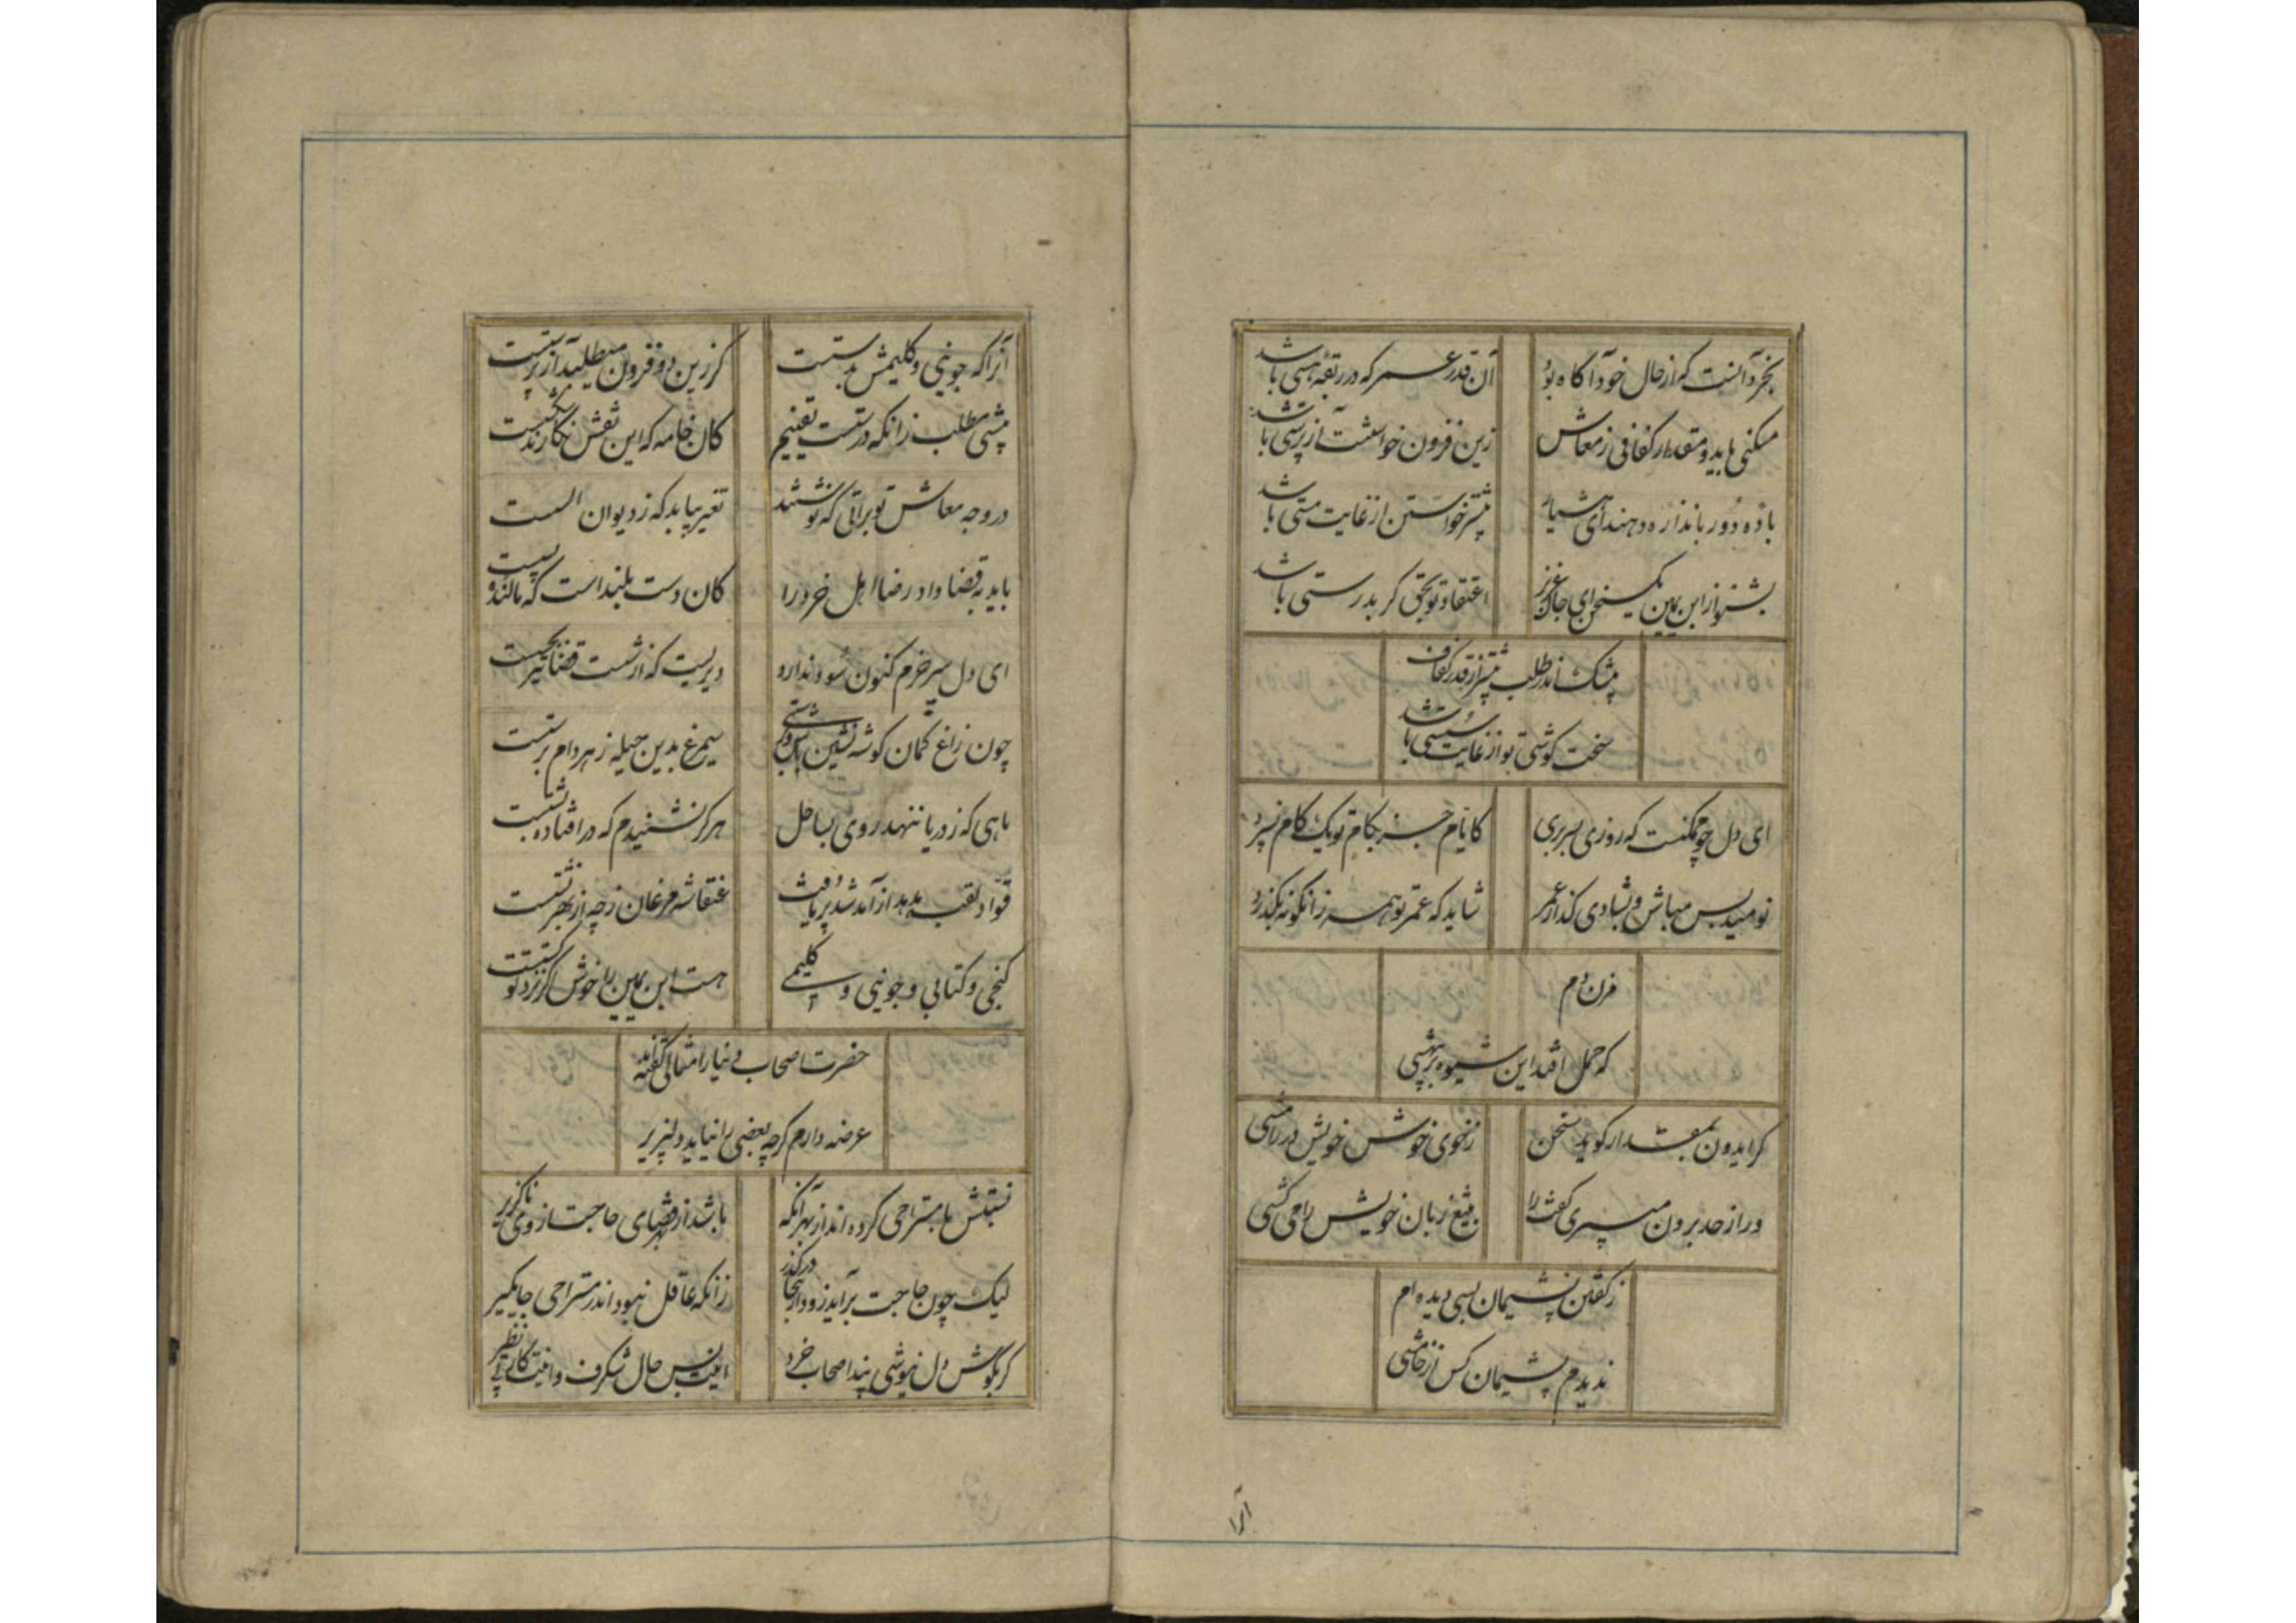 بخرد آنست که از حال خود آگاه بود
آن قدر عمر که در ربقهٔ هستی باشد
مسکنی باید و مقدار کفافی ز معاش
زین فزون خواستنت آزپرستی باشد
باده دور باندازه دهند ای هشیار
بیشتر خواستن از غایت مستی باشد
بشنو از ابن یمین یک سخن ای جان عزیز
اعتقاد تو بحق گر بدرستی باشد
بیشک اندر طلب بیشتر از قدر کفاف
سخت کوشی تو از غایت سستی باشد
ای دل چو ممکنست که روزی بسر بری
کایام جز بکام تو یک گام نسپرد
نومید بس مباش و بشادی گذار عمر
شاید که عمر تو همه زانگونه بگذرد
مزن دم
که حمل افتد این شیوه بر بیهشی
گر ایدون بمقدار گوید سخن
ز خوی خوش خویش در رامشی
ور از حد برون میبری گفت را
بتیغ زبان خویش را می کشی
ز گفتن پشیمان بسی دیده ام
ندیدم پشیمان کس از خامشی
آنرا
آنرا که جوینی و گلیمش بدستست
گر زین دو فزون میطلبد آزپرستست
بیشی مطلب زانکه درستست یقینم
کان خامه که این نقش نگارند شکستست
در وجه معاش تو براتی که نوشتند
تغییر نیابد که ز دیوان الست
باید به قضا داد رضا اهل خرد را
کان دست بلند است که مالنده پست
ای دل سپر خرم کنون سود ندارد
دیریست که از شست قضا تیر بجست
چون زاغ کمان گوشه نشین باش و درشتی
سیمرغ بدین حیله ز هر دام برستست
ماهی که ز دریا ننهد روی بساحل
هرگز نشنیدم که در افتاده بشستست
قواد لقب هدهد از آمد شد بریافت
عنقا شه مرغان ز چه از بهر نشستست
کنجی و کتابی و جوینی و گلیمی
هست ابن یمین را خوش اگر نزد تو
حضرت اصحاب دنیا را مثالی گفته اند
عرضه دارم گرچه بعضی را نیاید دلپذیر
نسبتش با مستراحی کرده اند از بهر آنکه
باشد از بهر قضای حاجت از وی ناگزیر
لیک چون حاجت برآید زود از آنجا در گذر
زانکه عاقل نبود اندر مستراحی جایگیر
گر بگوش دل نیوشی پند اصحاب خرد
اینت بس حال شگرف و اینت کاری بی نظیر